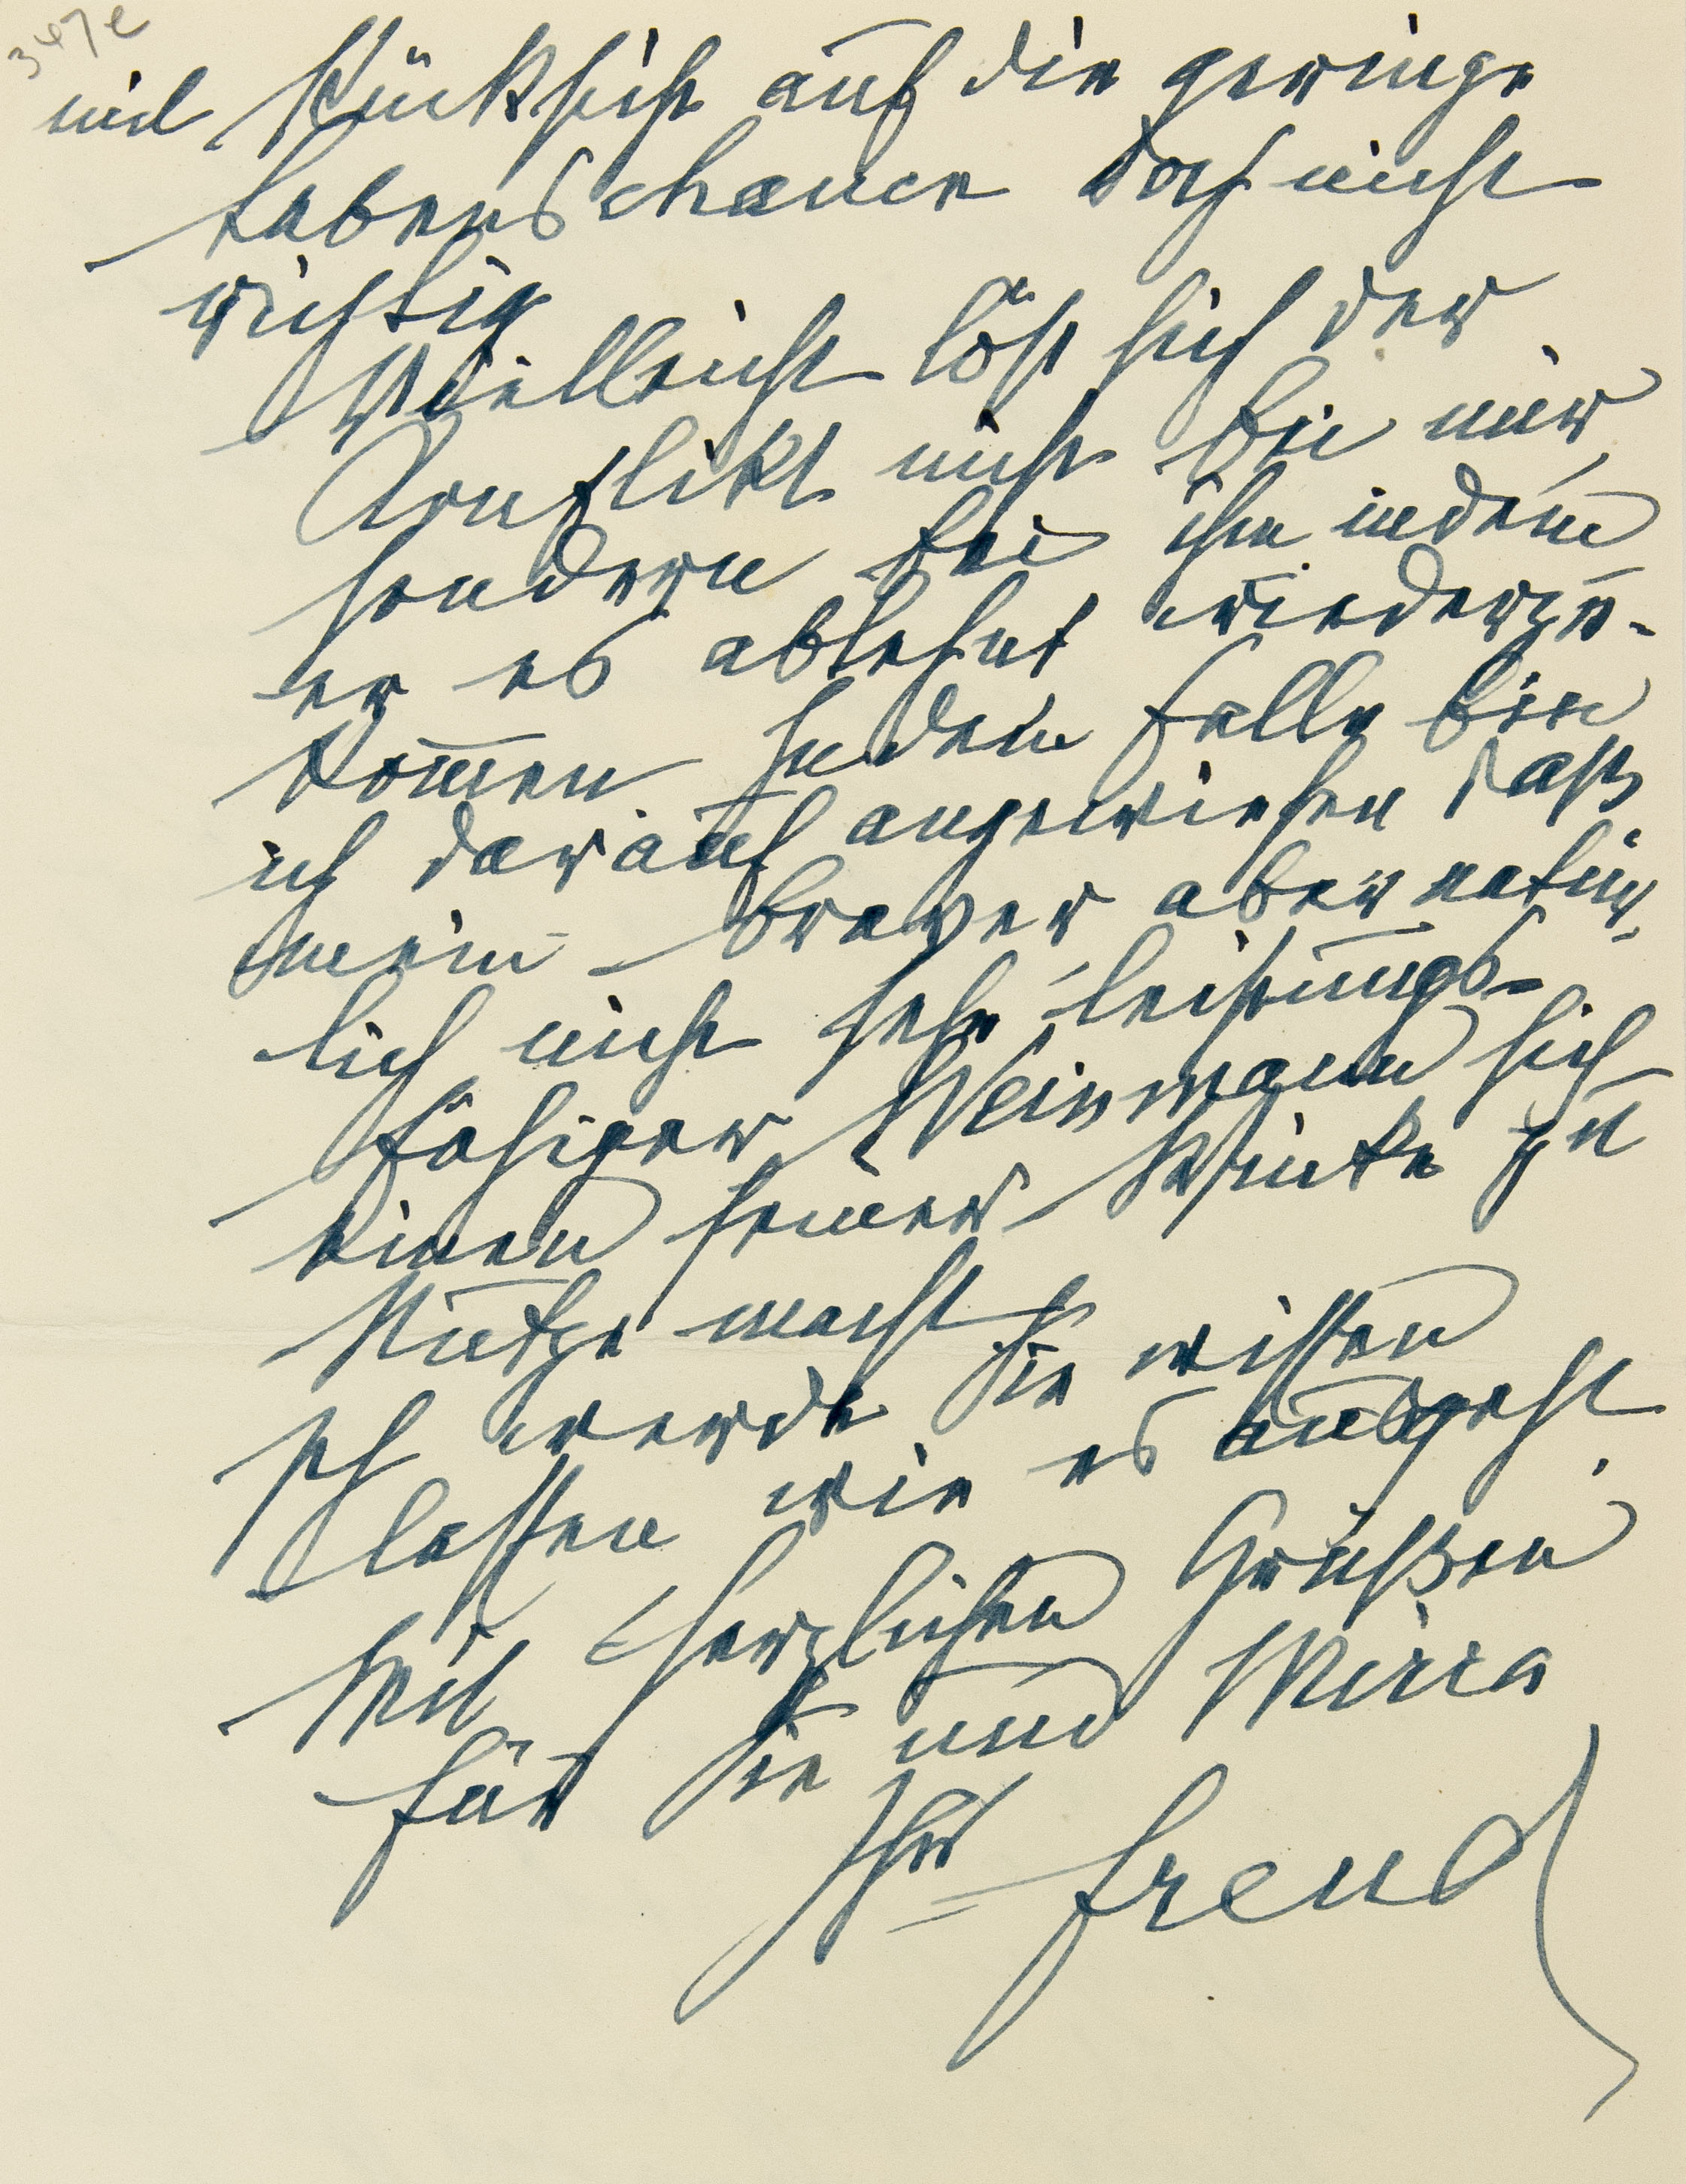 347e
mit Rücksicht auf die geringe
Lebenschance doch nicht
richtig
Vielleicht löst sich der
Konflikt nicht bei mir,
sondern bei ihm indem
er es ablehnt wiederzu-
kommen. In dem Falle bin
ich darauf angewiesen daß
mein braver aber natür-
lich nicht sehr leistungs-
fähiger Weinmann sich
einen seiner Winke zu
Nutze macht
Ich werde Sie wissen
lassen wie es ausgeht.
Mit herzlichen Grüßen
für Sie und Mirra
Ihr Freud